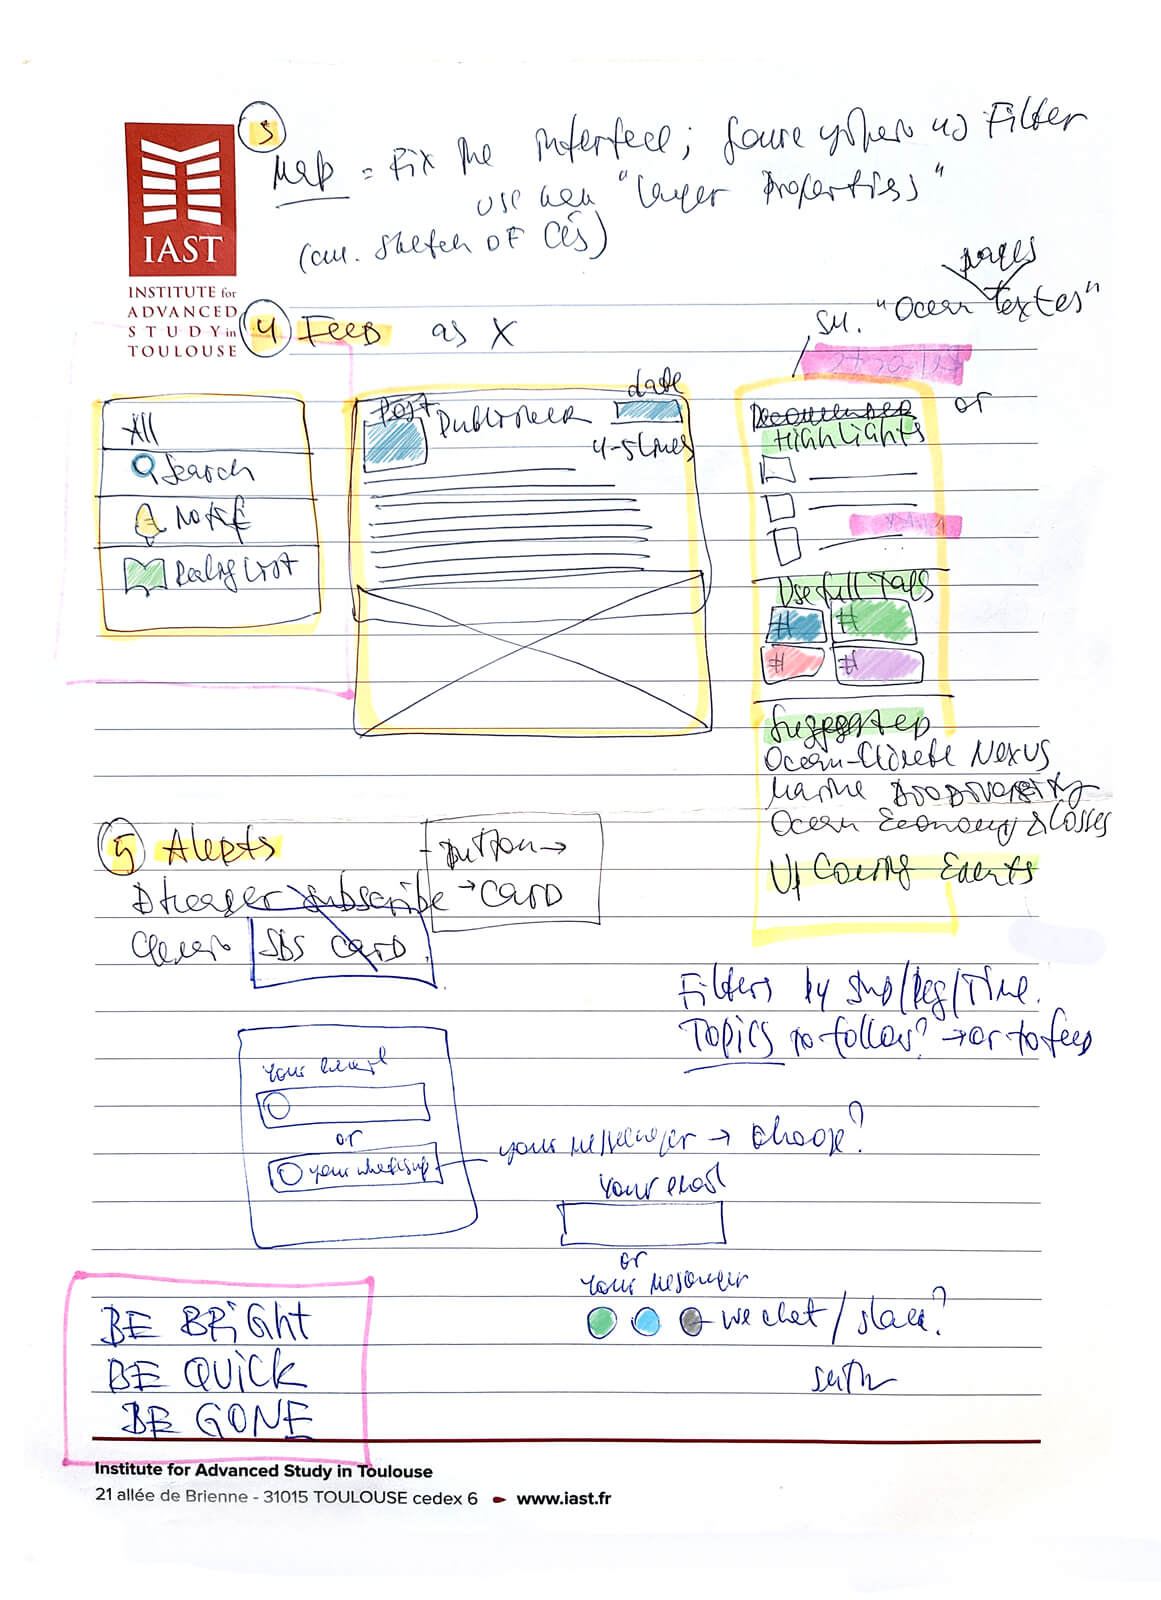 3
Map = Fix the interface; filter
use "Layer Properties"
(см. sketch of
IAST
INSTITUTE for
ADVANCED
STUDY in
TOULOUSE
pages
см. "Ocean Textes"
4 FEED as X
or
All
Search
Notif
List
Post Publisher date
4-5 lines
Highlights
Usefull Tags
# #
# #
Suggested
Ocean-Climate Nexus
Marine Biodiversity
Ocean Economy & Losses
Up Coming Events
5 Alerts
Button →
subscribe → CARD
SBS CARD
Filters by /Reg/Time.
Topics to follow? → or to feed
Your email
or
your whatsup
your messenger → choose?
Your email
or
Your messenger
we chat / slack?
BE BRiGHt
BE QUiCK
BE GONE
Institute for Advanced Study in Toulouse
21 allée de Brienne - 31015 TOULOUSE cedex 6 www.iast.fr